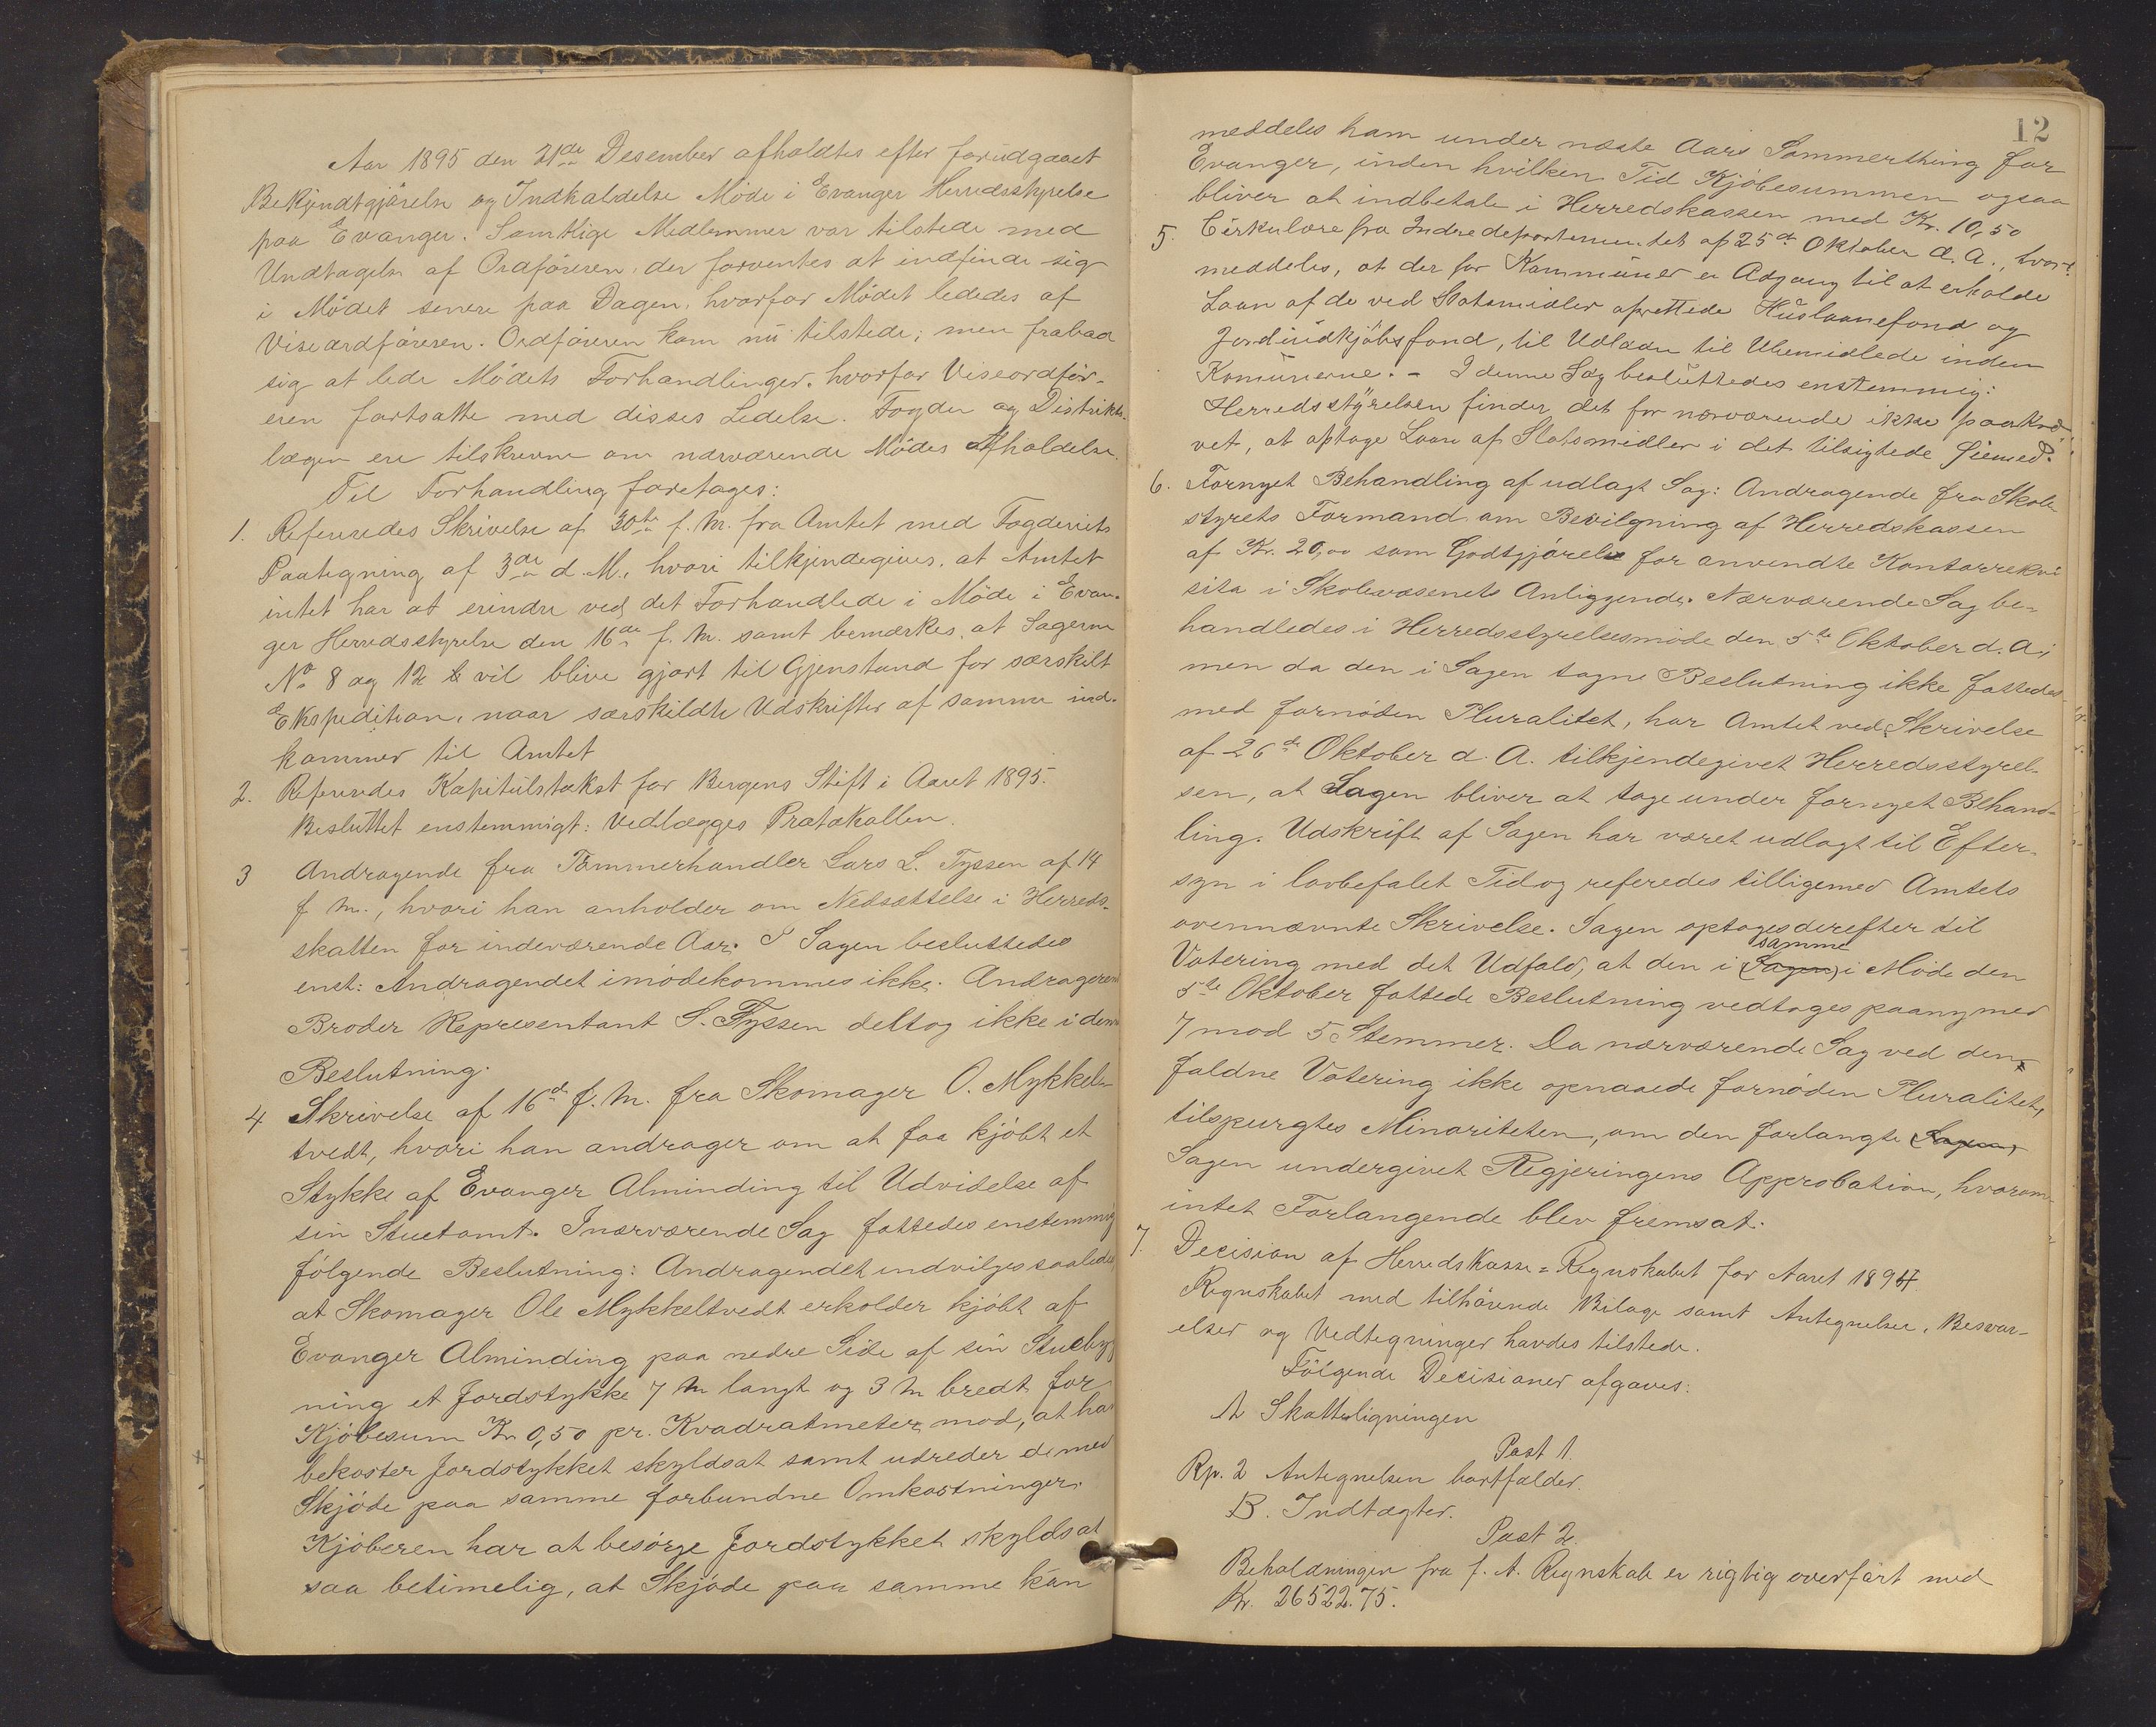 Aar 1895 den 21de Desember afholdtes efter forudgaaet
Bekjendtgjörelse og Indkaldelse Möde i Evanger Herredsstyrelse
paa Evanger. Samtlige Medlemmer var tilstede med
Undtagelse af Ordföreren, der forventes at indfinde sig
i Mödet senere paa Dagen, hvorfor Mödet lededes af
Viseordföreren. Ordföreren kom nu tilstede; men frabad
sig at lede Mödets Forhandlinger, hvorfor Viseordför-
eren fortsatte med disses Ledelse. Fogden og Distrikts-
lægen ere tilskrevne om nærværende Mödes Afholdelse.
Til Forhandling foretages:
1. Refereredes Skrivelse af 30te f. M. fra Amtet med Fogderiets
Paategning af 3de d. M., hvori tilkjendegives, at Amtet
intet har at erindre ved det Forhandlede i Möde i Evan-
ger Herredsstyrelse den 16de f. M. samt bemærkes, at Sagerne
No 8 og 12 b vil blive gjort til Gjenstand for særskilt
Ekspedition, naar særskildte Udskrifter af samme ind-
kommer til Amtet
2. Refereredes Kapitulstakst for Bergens Stift i Aaret 1895.
Besluttet enstemmigt: Vedlægges Protokollen.
3 Andragende fra Tömmerhandler Lars L. Tyssen af 14
f M., hvori han anholder om Nedsættelse i Herreds-
skatten for indeværende Aar. I Sagen besluttedes
enst: Andragendet imödekommes ikke. Andragerens
Broder Representant S. Tyssen deltog ikke i denne
Beslutning.
4 Skrivelse af 16de f. M. fra Skomager O. Mykkel-
tvedt, hvori han andrager om at faa kjöbt et
Stykke af Evanger Alminding til Udvidelse af
sin Stuetomt. I nærværende Sag fattedes enstemmig
fölgende Beslutning: Andragendet indvilges saaledes
at Skomager Ole Mykkeltvedt erholder kjöbt af
Evanger Alminding paa nedre Side af sin Stuebyg
ning et Jordstykke 7 M langt og 3 M bredt for
Kjöbesum Kr 0,50 pr. Kvadratmeter, mod, at han
bekoster Jordstykket skyldsat samt udreder de med
Skjöde paa samme forbundne Omkostninger.
Kjöberen har at besörge Jordstykket skyldsat
saa betimelig, at Skjöde paa samme kan
12
meddeles ham under næste Aars Sommerthing for
Evanger, inden hvilken Tid Kjöbesummen ogsaa
bliver at indbetale i Herredskassen med Kr. 10,50
5. Cirkulære fra Indredepartementet af 25de Oktober d. A., hvori
meddeles, at der for Kommuner er Adgang til at erholde
Laan af de ved Statsmidler oprettede Huslaanefond og
Jordindkjöbsfond, til Udlaan til Ubemidlede inden
Komunerne. - I denne Sag besluttedes enstemmig:
Herredsstyrelsen finder det for nærværende ikke paakræ-
vet, at optage Laan af Statsmidler i det tilsigtede Öiemed.
6. Fornyet Behandling af udlagt Sag: Andragende fra Skole-
styrets Formand om Bevilgning af Herredskassen
af Kr. 20,00 som Godtgjörelse for anvendte Kontorrekvi
sita i Skolevæsenets Anliggende. Nærværende Sag be-
handledes i Herredsstyrelsesmöde den 5te Oktober d. A.;
men da den i Sagen tagne Beslutning ikke fattedes
med fornöden Pluralitet, har Amtet ved Skrivelse
af 26de Oktober d. A. tilkjendegivet Herredsstyrel-
sen, at Sagen bliver at tage under fornyet Behand-
ling. Udskrift af Sagen har været udlagt til Efter-
syn i lovbefalet Tid og referedes tilligemed Amtets
ovennævnte Skrivelse. Sagen optoges derefter til
samme
Votering med det Udfald, at den i (Sagen) i Möde den
5te Oktober fattede Beslutning vedtoges paany med
7 mod 5 Stemmer. Da nærværende Sag ved den
faldne Votering ikke opnaaede fornöden Pluralitet,
tilspurgtes Minoriteten, om den forlangte (Sagen)
Sagen undergivet Regjeringens Approbation, hvorom
intet Forlangende blev fremsat.
7. Decision af Herredskasse=Regnskabet for Aaret 1894
Regnskabet med tilhörende Bilage samt Antegnelser, Besvar-
elser og Vedtegninger havdes tilstede.
Fölgende Decisioner afgaves:
A Skatteligningen
Post 1.
Rp. 2 Antegnelsen bortfalder.
B. Indtægter.
Post 2.
Beholdningen fra f. A. Regnskab er rigtig overfört med
Kr. 26522.75.